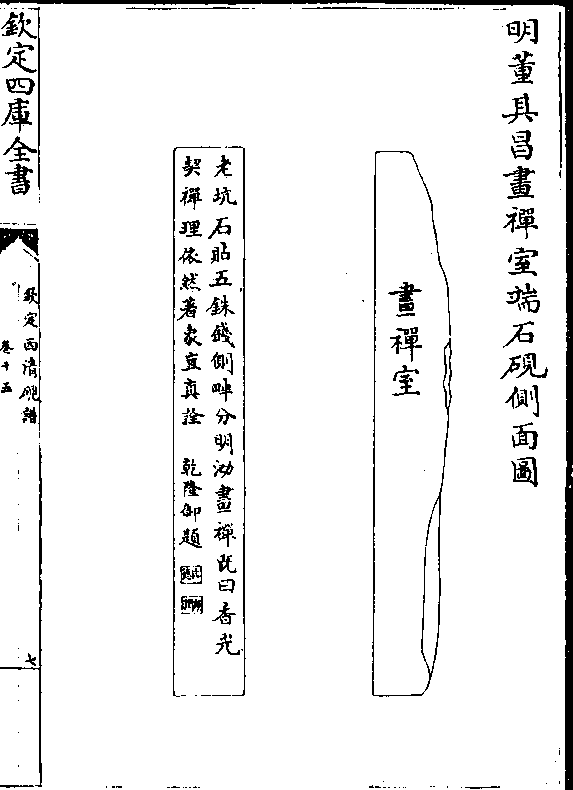 明董其昌畫禪室端石硯側面圖
畫禪室
老坑石貼五銖錢側畔分明泐畫禪既曰香光
契禪理依然著象豈真詮 乾隆御題
欽定四庫全書
欽定西清硯譜
卷十五
七